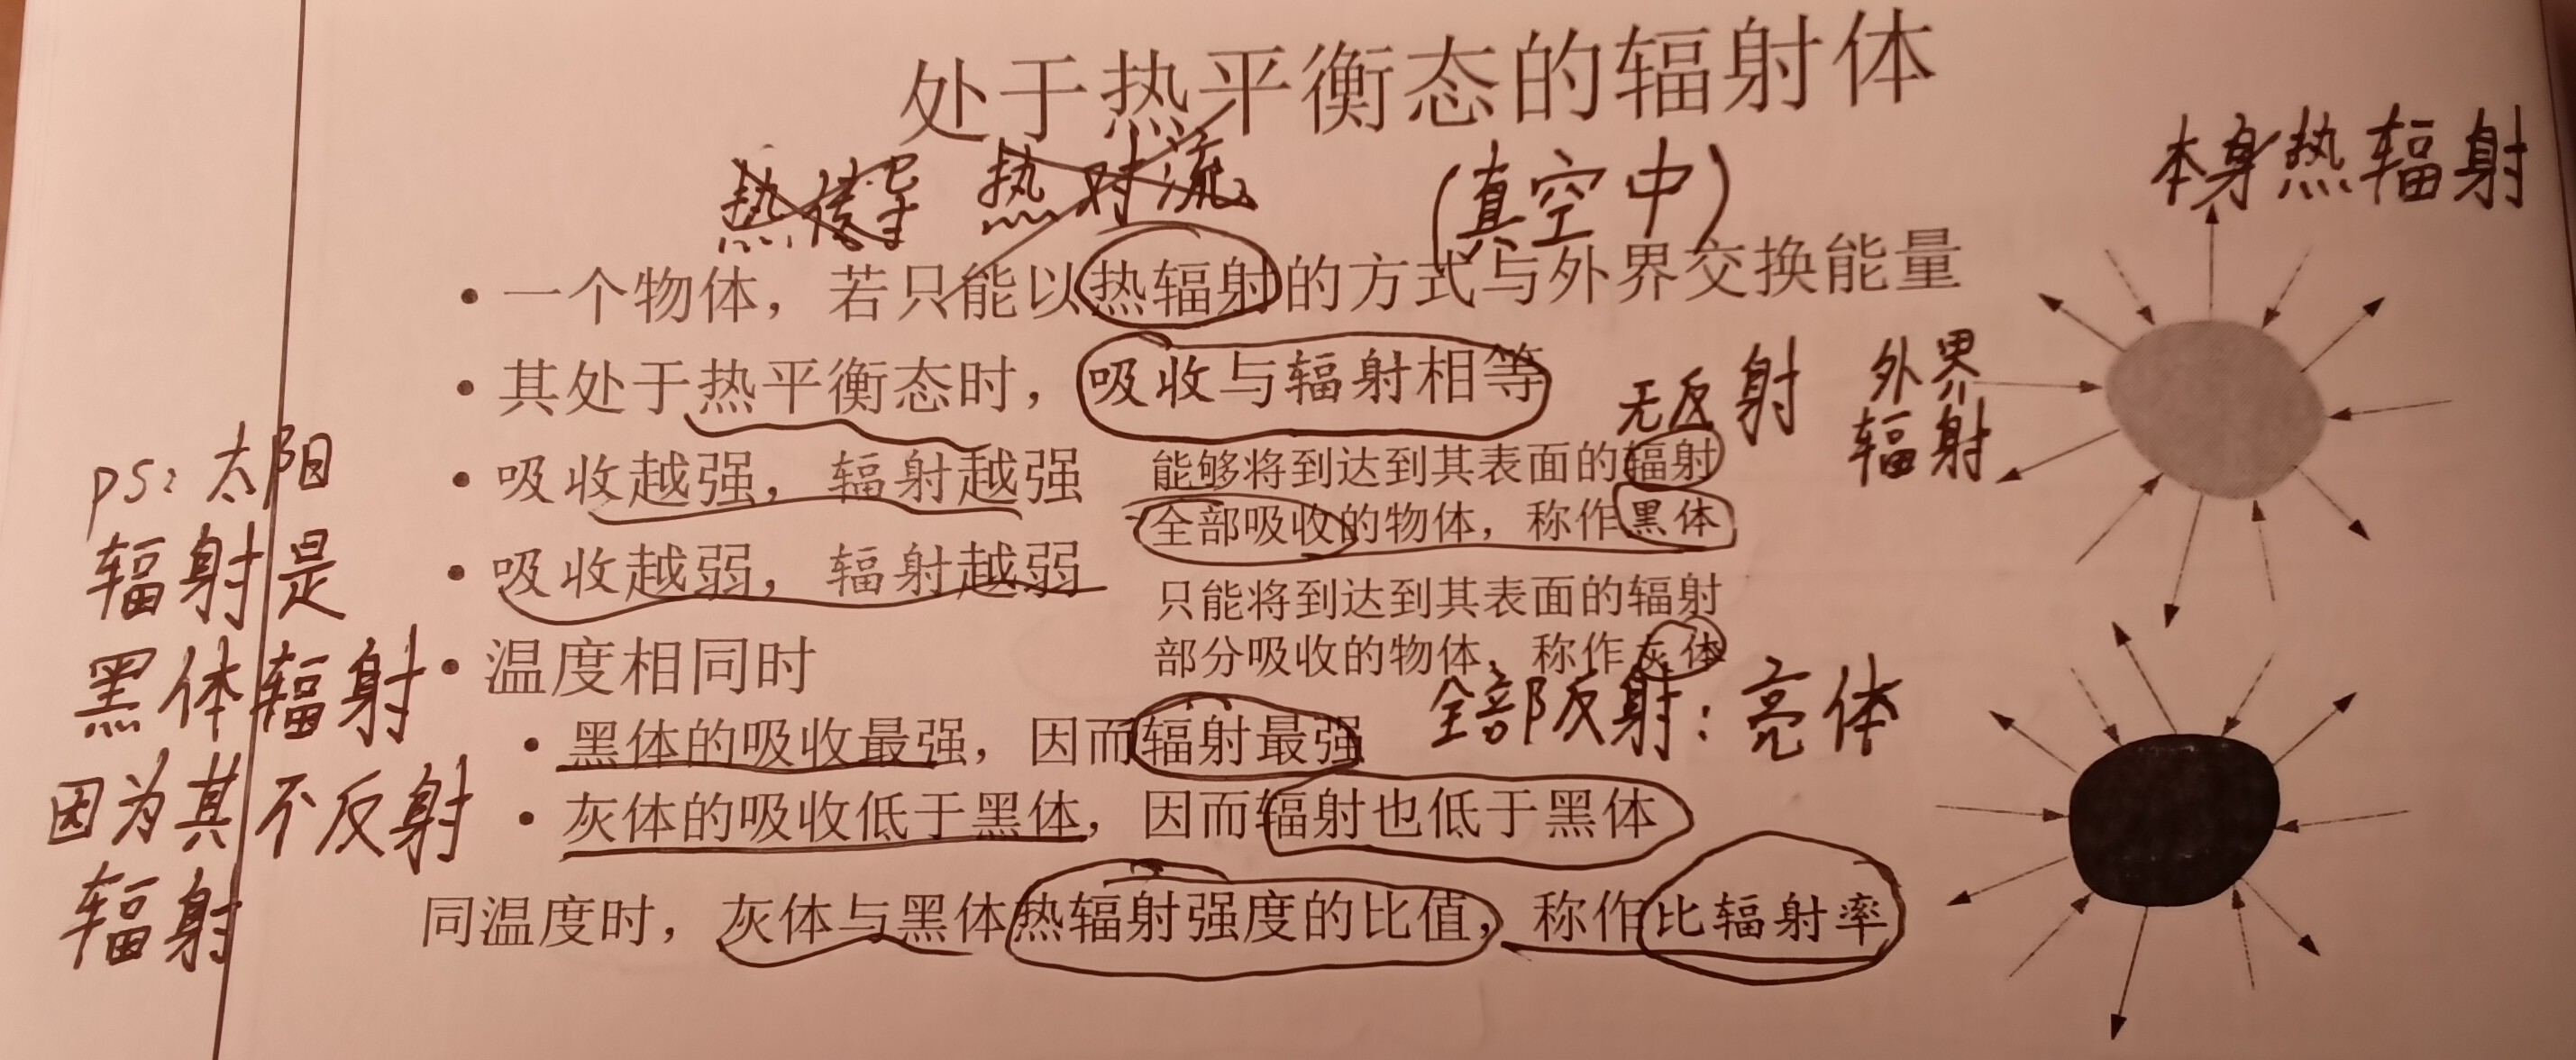 处于热平衡态的辐射体
热传导 热对流 (真空中)
本身热辐射
• 一个物体，若只能以热辐射的方式与外界交换能量
• 其处于热平衡态时，吸收与辐射相等
无反射
外界
辐射
• 吸收越强，辐射越强
• 吸收越弱，辐射越弱
能够将到达到其表面的辐射
全部吸收的物体，称作黑体
只能将到达到其表面的辐射
部分吸收的物体，称作灰体
全部反射：亮体
• 温度相同时
• 黑体的吸收最强，因而辐射最强
• 灰体的吸收低于黑体，因而辐射也低于黑体
同温度时，灰体与黑体热辐射强度的比值，称作比辐射率
ps: 太阳
辐射是
黑体辐射
因为其不反射
辐射